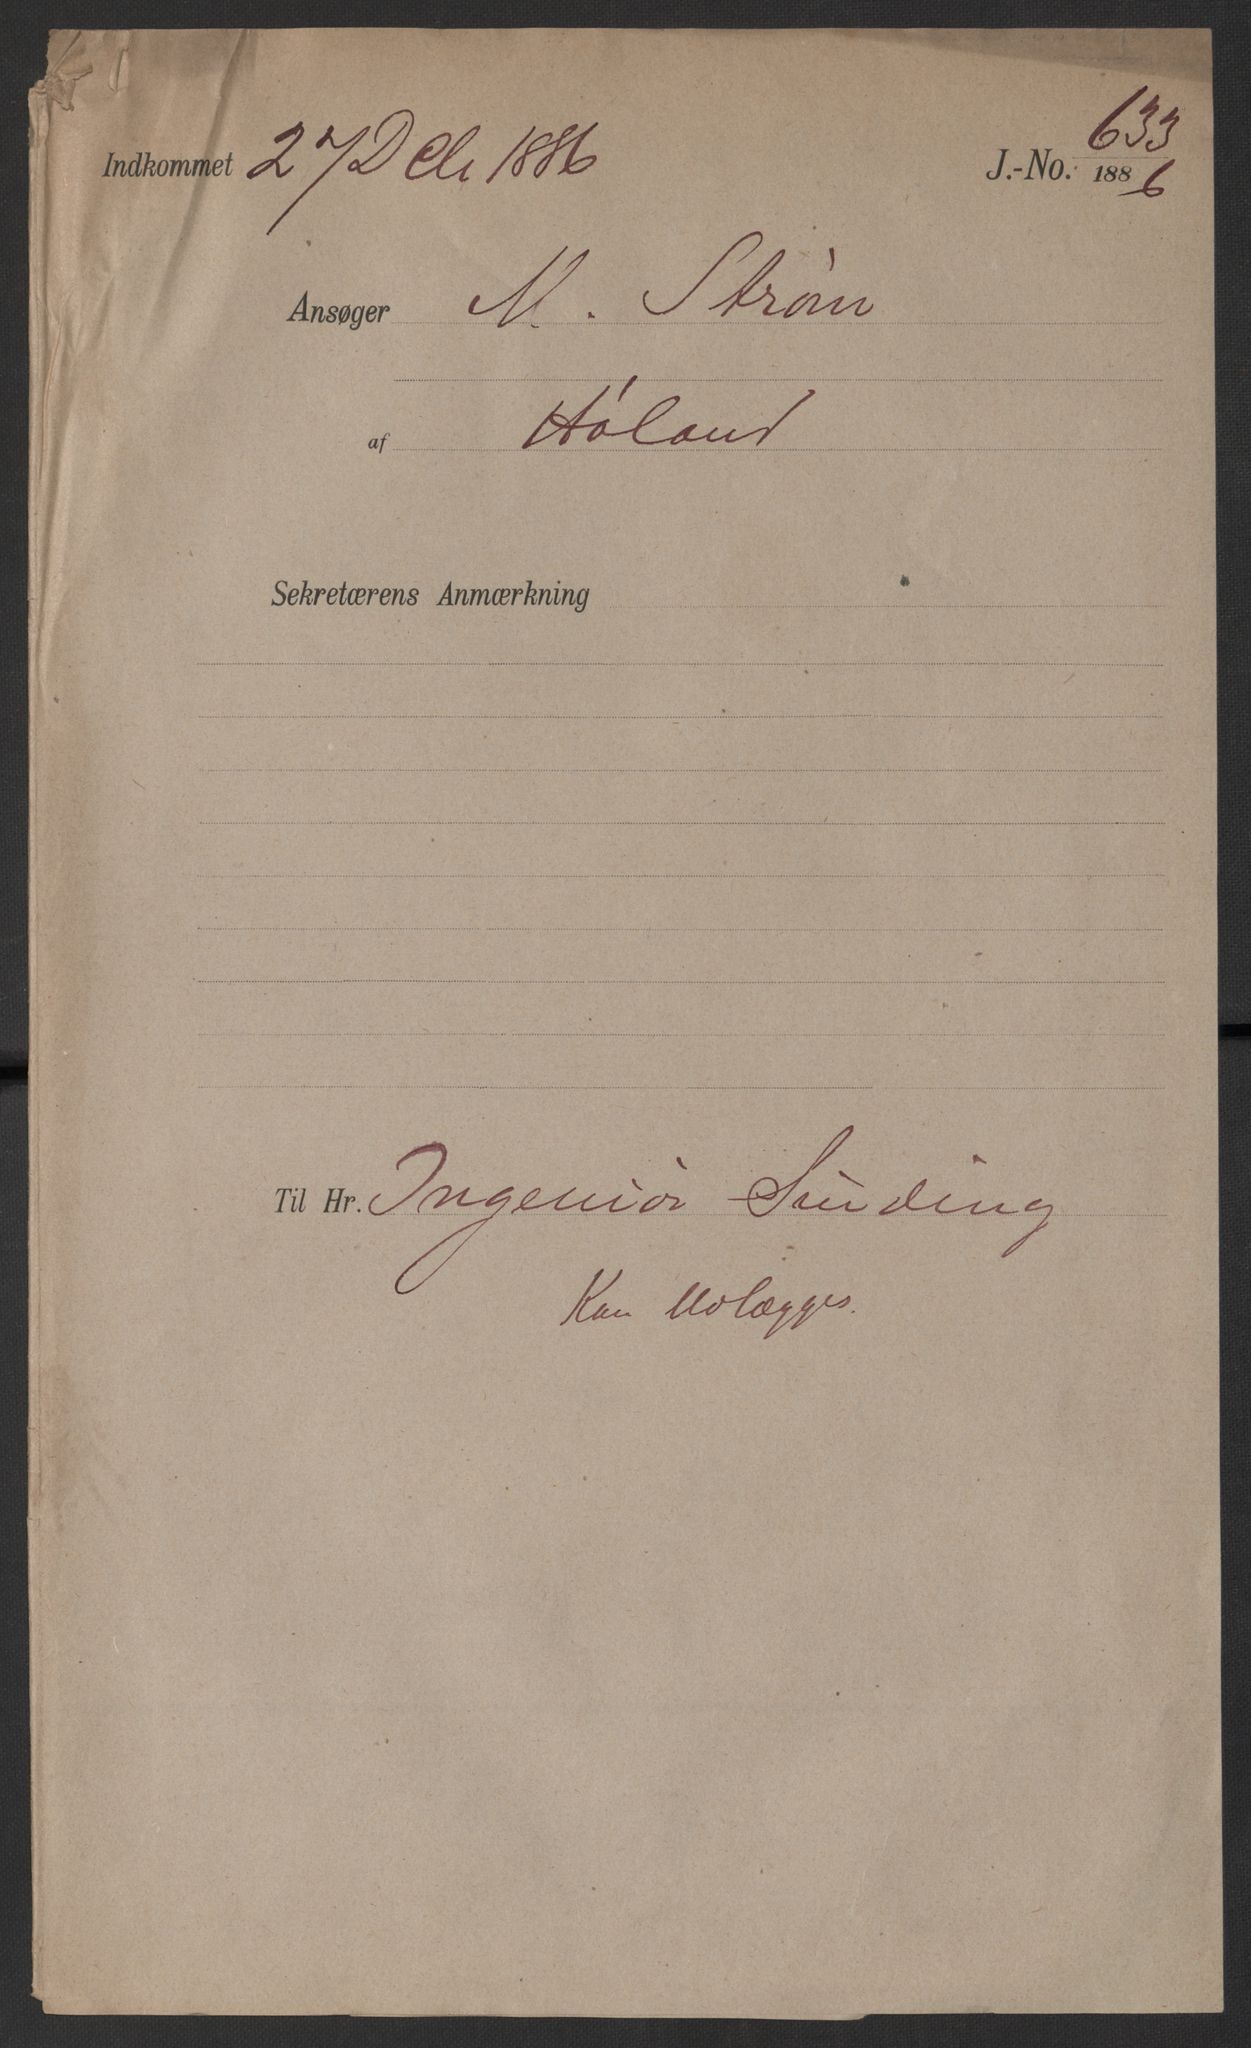 Indkommet 27 Decbr 1886
J.-No. 633
1886
Ansøger M. Strøm
af Høland
Sekretærens Anmærkning
Til Hr. Ingeniør Sinding
Kan Udlægges.